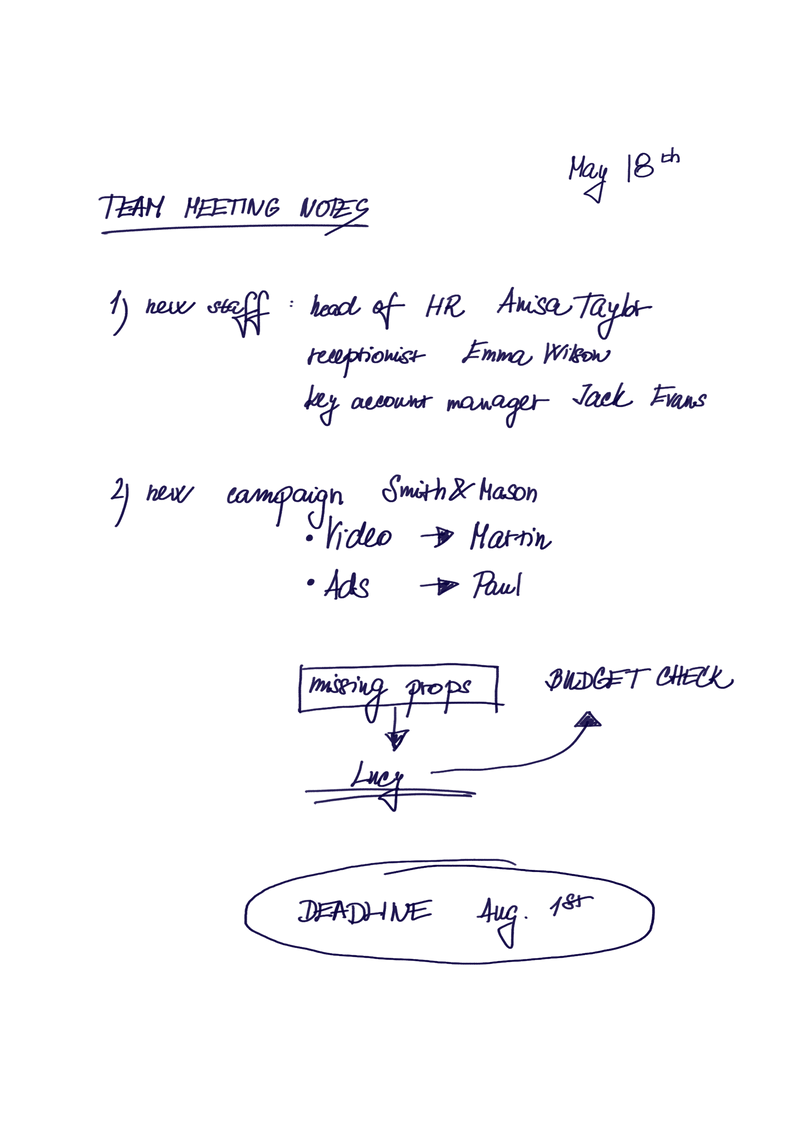 May 18th
TEAM MEETING NOTES
1) new staff : head of HR Anisa Taylor
receptionist Emma Wilson
key account manager Jack Evans
2) new campaign Smith & Mason
• Video → Martin
• Ads → Paul
missing props
BUDGET CHECK
Lucy
DEADLINE Aug. 1st